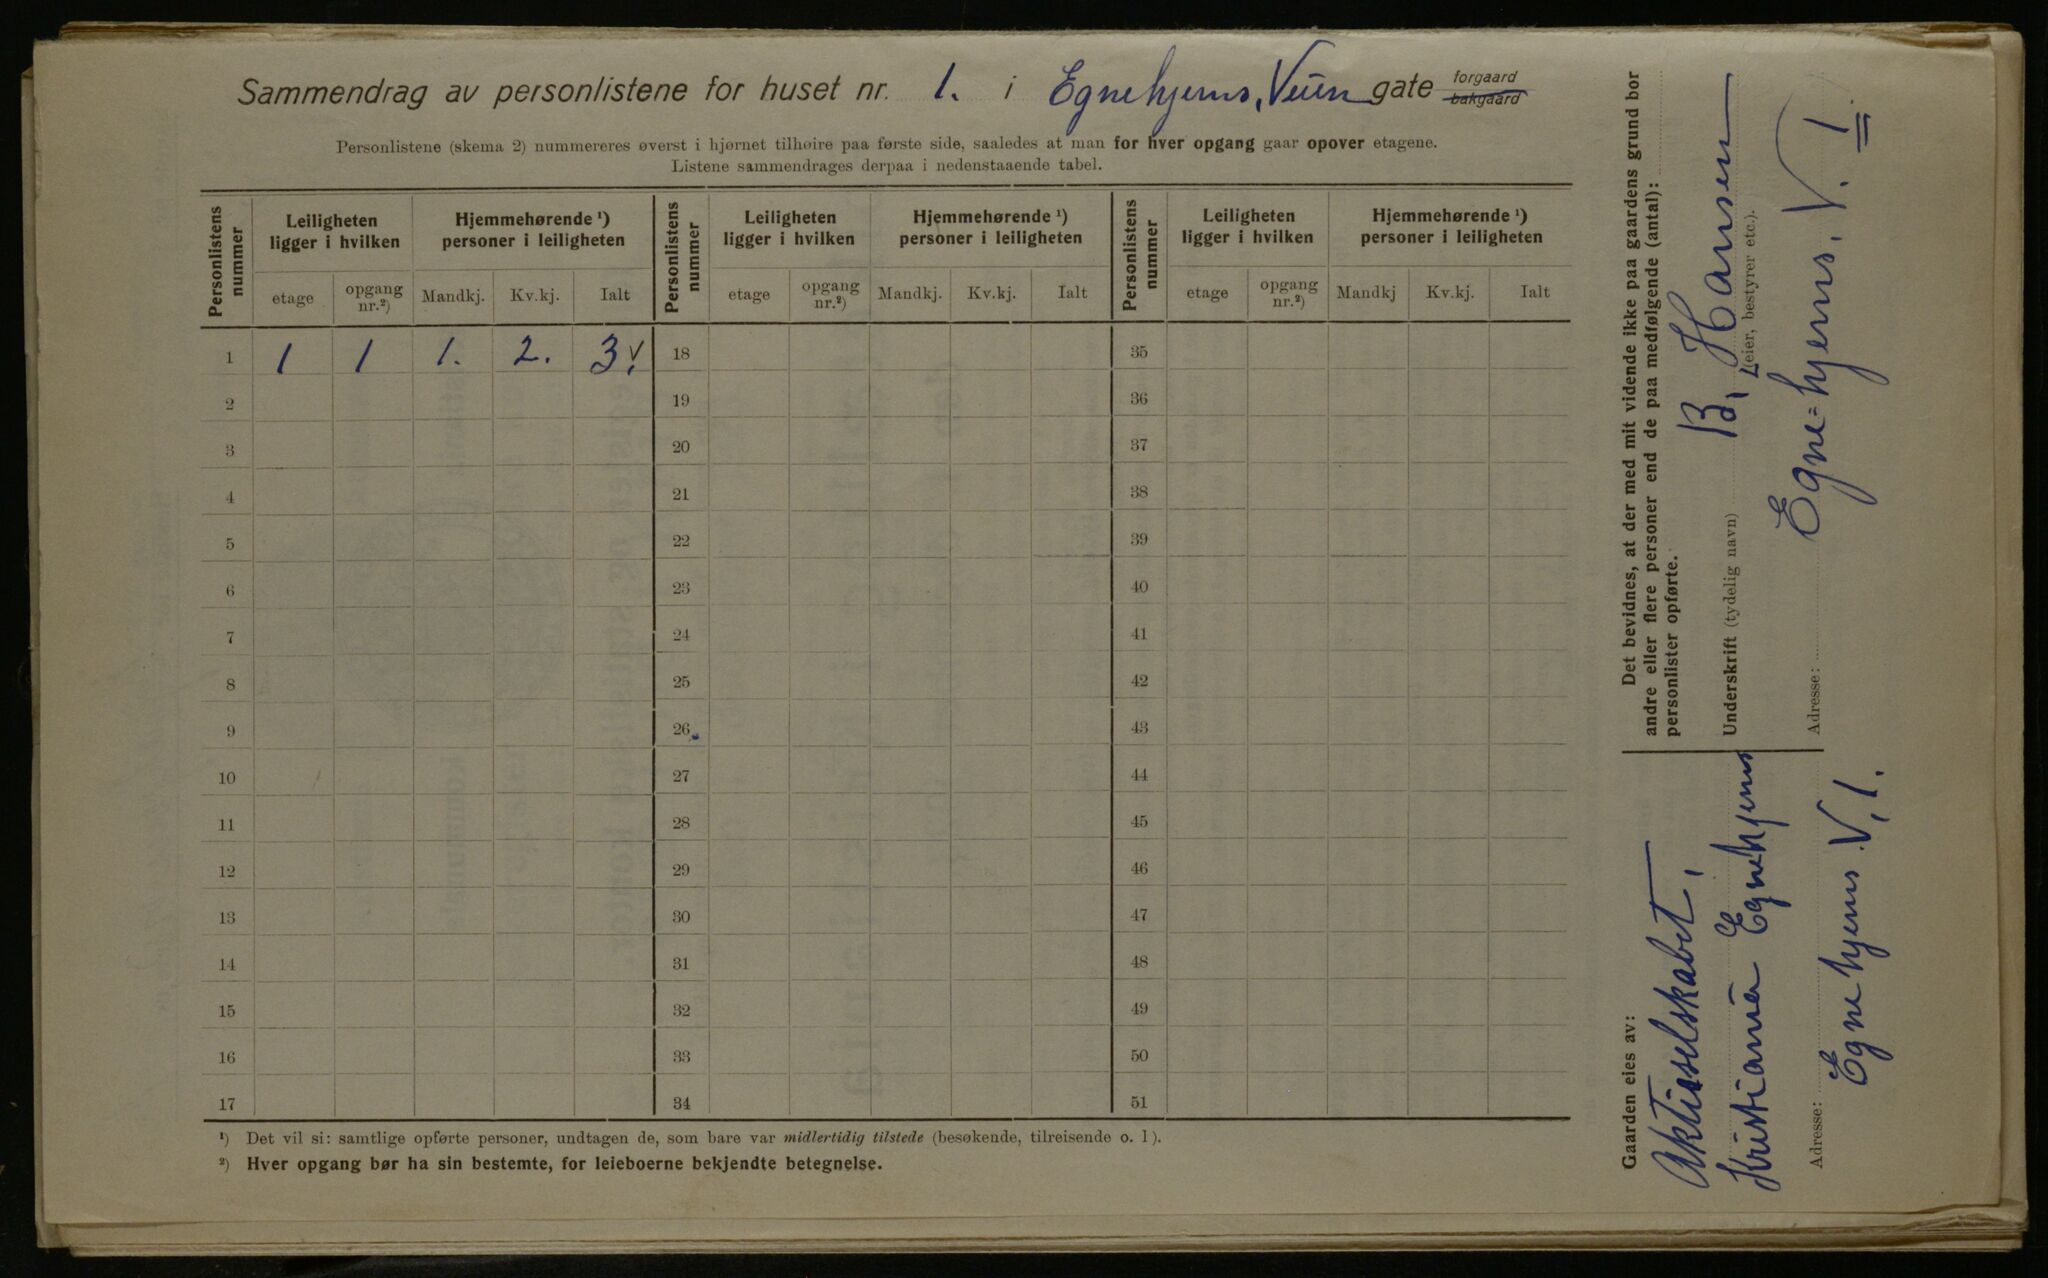 Sammendrag av personlistene for huset nr. 1. i Egnehjems, Veien gate forgaard bakgaard
Personlistene (skema 2) nummereres øverst i hjørnet tilhøire paa første side, saaledes at man for hver opgang gaar opover etagene.
Listene sammendrages derpaa i nedenstaaende tabel.
Personlistens nummer | Leiligheten ligger i hvilken | Hjemmehørende ¹) personer i leiligheten | Personlistens nummer | Leiligheten ligger i hvilken | Hjemmehørende ¹) personer i leiligheten | Personlistens nummer | Leiligheten ligger i hvilken | Hjemmehørende ¹) personer i leiligheten
etage | opgang nr.²) | Mandkj. | Kv.kj. | Ialt | etage | opgang nr.²) | Mandkj. | Kv.kj. | Ialt | etage | opgang nr.²) | Mandkj | Kv.kj. | Ialt
1 | 1 | 1 | 1. | 2. | 3. v | 18 | 35
2 | 19 | 36
3 | 20 | 37
4 | 21 | 38
5 | 22 | 39
6 | 23 | 40
7 | 24 | 41
8 | 25 | 42
9 | 26 | 43
10 | 27 | 44
11 | 28 | 45
12 | 29 | 46
13 | 30 | 47
14 | 31 | 48
15 | 32 | 49
16 | 33 | 50
17 | 34 | 51
¹) Det vil si: samtlige opførte personer, undtagen de, som bare var midlertidig tilstede (besøkende, tilreisende o. l).
²) Hver opgang bør ha sin bestemte, for leieboerne bekjendte betegnelse.
Gaarden eies av:
Aktieselskabet,
Kristiania Egnehjems
Adresse:
Egnehjems V, 1.
Det bevidnes, at der med mit vidende ikke paa gaardens grund bor
andre eller flere personer end de paa medfølgende (antal):
personlister opførte.
Underskrift (tydelig navn) B. Hansen
(eier, bestyrer etc.).
Adresse: Egne=hjems. V. 1